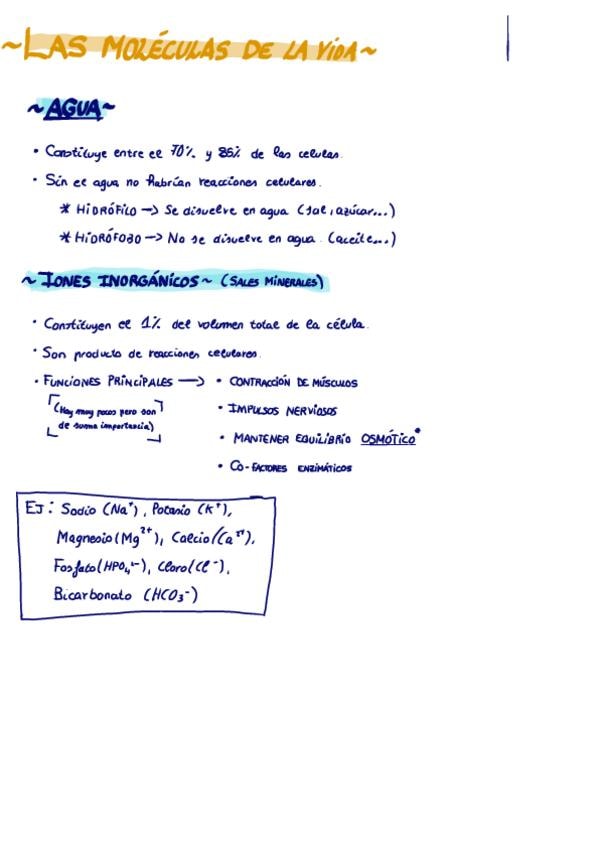 ~LAS MOLÉCULAS DE LA VIDA~
~AGUA~
• Constituye entre el 70% y 85% de las celulas.
• Sin el agua no habrían reacciones celulares.
* HIDRÓFILO -> Se disuelve en agua (sal, azúcar...)
* HIDRÓFOBO -> No se disuelve en agua. (aceite...)
~ IONES INORGÁNICOS ~ (SALES MINERALES)
• Constituyen el 1% del volumen total de la célula.
• Son producto de reacciones celulares.
• FUNCIONES PRINCIPALES -> • CONTRACCIÓN DE MÚSCULOS
(Hay muy pocos pero son
de suma importancia)
• IMPULSOS NERVIOSOS
• MANTENER EQUILIBRIO OSMÓTICO*
• CO-FACTORES ENZIMÁTICOS
EJ: Sodio (Na⁺), Potasio (K⁺),
Magnesio (Mg²⁺), Calcio (Ca²⁺),
Fosfato (HPO₄²⁻), Cloro (Cl⁻),
Bicarbonato (HCO₃⁻)